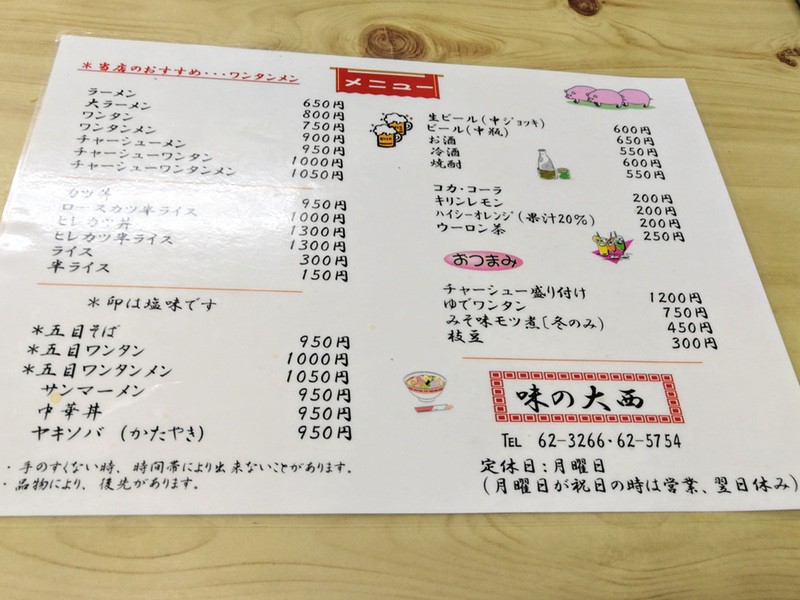 ＊当店のおすすめ・・・ワンタンメン
メニュー
ラーメン 650円
大ラーメン 800円
ワンタン 750円
ワンタンメン 900円
チャーシューメン 950円
チャーシューワンタン 1000円
チャーシューワンタンメン 1050円
カツ丼 950円
ロースカツ半ライス 1000円
ヒレカツ丼 1300円
ヒレカツ半ライス 1300円
ライス 300円
半ライス 150円
＊印は塩味です
＊五目そば 950円
＊五目ワンタン 1000円
＊五目ワンタンメン 1050円
サンマーメン 950円
中華丼 950円
ヤキソバ (かたやき) 950円
・手のすくない時、時間帯により出来ないことがあります。
・品物により、後先があります。
生ビール(中ジョッキ) 600円
ビール(中瓶) 650円
お酒 550円
冷酒 600円
焼酎 550円
コカ・コーラ 200円
キリンレモン 200円
ハイシーオレンジ(果汁20%) 200円
ウーロン茶 250円
おつまみ
チャーシュー盛り付け 1200円
ゆでワンタン 750円
みそ味モツ煮(冬のみ) 450円
枝豆 300円
味の大西
TEL 62-3266・62-5754
定休日：月曜日
(月曜日が祝日の時は営業、翌日休み)